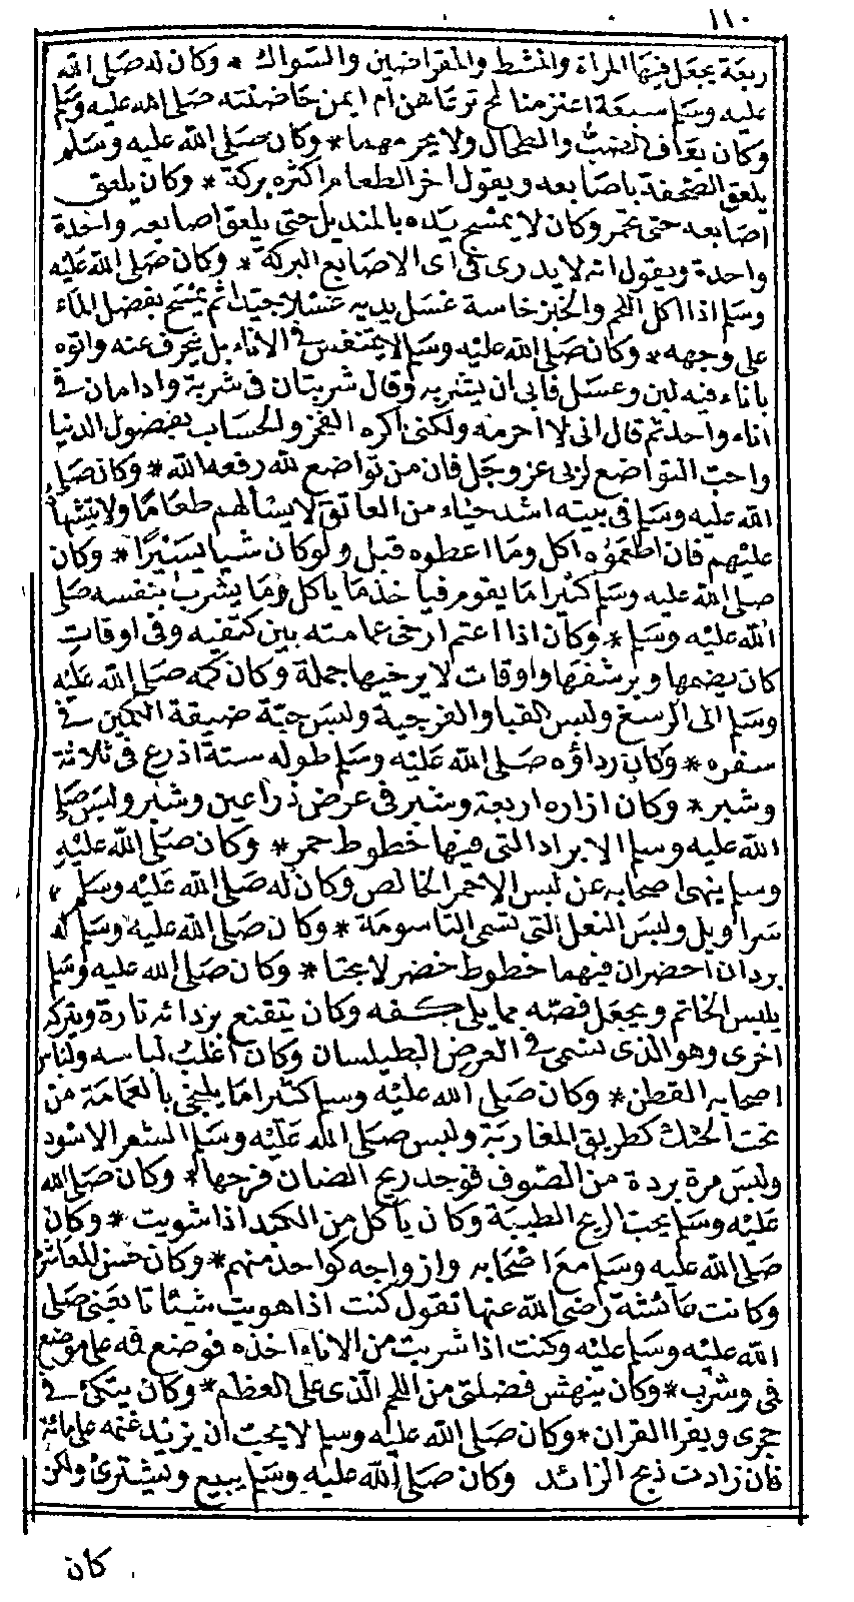 ١١٠
ربعة يجعل فيها المراة والمشط والمقراضين والسواك * وكان له صلى الله
عليه وسلم سبعة اعنز منائح ترعاهن ام ايمن حاضنته صلى الله عليه وسلم
وكان يعاف الضب والطحال ولا يحرمهما * وكان صلى الله عليه وسلم
يلعق الصحفة باصابعه ويقول اخر الطعام اكثره بركة * وكان يلعق
اصابعه حتى تحمر وكان لا يمسح يده بالمنديل حتى يلعق اصابعه واحدة
واحدة ويقول انه لا يدرى فى اى الاصابع البركة * وكان صلى الله عليه
وسلم اذا اكل اللحم والخبز خاصة غسل يديه غسلا جيدا ثم يمسح بفضل الماء
على وجهه * وكان صلى الله عليه وسلم لا يتنفس فى الاناء بل ينحرف عنه واتوه
باناء فيه لبن وعسل فابى ان يشربه وقال شربتان فى شربة وادامان فى
اناء واحد ثم قال انى لا احرمه ولكنى اكره الفخر والحساب بفضول الدنيا
واحب التواضع لربى عز وجل فان من تواضع لله رفعه الله * وكان صلى
الله عليه وسلم فى بيته اشد حياء من العاتق لا يسألهم طعاما ولا يتشهاه
عليهم فان اطعموه اكل وما اعطوه قبل ولو كان شيا يسيرا * وكان
صلى الله عليه وسلم كثيرا ما يقوم فياخذ ما ياكل وما يشرب بنفسه صلى
الله عليه وسلم * وكان اذا اعتم ارخى عمامته بين كتفيه وفى اوقات
كان يضمها ويرشقها واوقات لا يرخيها جملة وكان كمه صلى الله عليه
وسلم الى الرسغ ولبس القبا والفرجية ولبس جبة ضيقة الكمين فى
سفره * وكان رداؤه صلى الله عليه وسلم طوله ستة اذرع فى ثلاثة
وشبر * وكان ازاره اربعة وشبر فى عرض ذراعين وشبر ولبس صلى
الله عليه وسلم الابراد التى فيها خطوط حمر * وكان صلى الله عليه
وسلم ينهى اصحابه عن لبس الاحمر الخالص وكان له صلى الله عليه وسلم
سراويل ولبس النعل التى تسمى التاسومة * وكان صلى الله عليه وسلم له
بردان اخضران فيهما خطوط خضر لا بحتا * وكان صلى الله عليه وسلم
يلبس الخاتم ويجعل فصه مما يلى كفه وكان يتقنع بردائه تارة ويتركه
اخرى وهو الذى تسمى فى العرض الطيلسان وكان اغلب لباسه ولباس
اصحابه القطن * وكان صلى الله عليه وسلم كثيرا ما يلتحى بالعمامة من
تحت الحنك كطريق المغاربة ولبس صلى الله عليه وسلم الشعر الاسود
ولبس مرة بردة من الصوف فوجد ريح الضان فرجها * وكان صلى الله
عليه وسلم يحب الريح الطيبة وكان يأكل من الكبد اذا شويت * وكان
صلى الله عليه وسلم مع اصحابه وازواجه كواحد منهم * وكان حسن المعاشرة
وكانت عائشة رضى الله عنها تقول كنت اذا هويت شيئا تابعنى صلى
الله عليه وسلم عليه وكنت اذا شربت من الاناء اخذه فوضع فمه على موضع
فمى وشرب * وكان ينهش فضلتى من اللحم الذى على العظم * وكان يتكئ فى
حجرى ويقرا القران * وكان صلى الله عليه وسلم لا يحب ان يزيد غنمه على مائة
فان زادت ذبح الزائد وكان صلى الله عليه وسلم يبيع ويشترى ولكن
كان